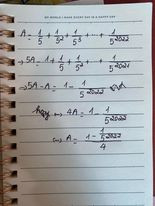 DO WHAT I WANT, EVERY DAY IS A HAPPY DAY
A = 1/5 + 1/5² + 1/5³ + ... + 1/5²⁰²²
→ 5A = 1 + 1/5 + 1/5² + ... + 1/5²⁰²¹
→ 5A - A = 1 - 1/5²⁰²²
hay ↔ 4A = 1 - 1/5²⁰²²
↔ A = (1 - 1/5²⁰²²)/4